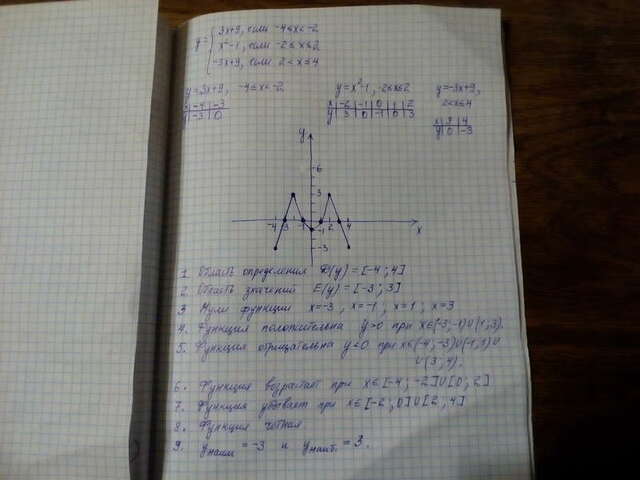 y = { 3x+9, если -4≤x<-2
x²-1, если -2≤x≤2
-3x+9, если 2<x≤4
y=3x+9, -4≤x<-2 y=x²-1, -2≤x≤2 y=-3x+9,
2<x≤4
x -4 -3 x -2 -1 0 1 2
y -3 0 y 3 0 -1 0 3
x 3 4
y 0 -3
y
6
3
-4 -3 -1 2 4 x
-1
-3
1. Область определения D(y)=[-4; 4]
2. Область значений E(y)=[-3; 3]
3. Нули функции x=-3, x=-1, x=1, x=3
4. Функция положительна y>0 при x∈(-3;-1)U(1;3).
5. Функция отрицательна y<0 при x∈(-4;-3)U(-1;1)U
U(3;4).
6. Функция возрастает при x∈[-4; -2]U[0; 2]
7. Функция убывает при x∈[-2; 0]U[2; 4]
8. Функция чётная
9. yнаим = -3 и yнаиб. = 3.